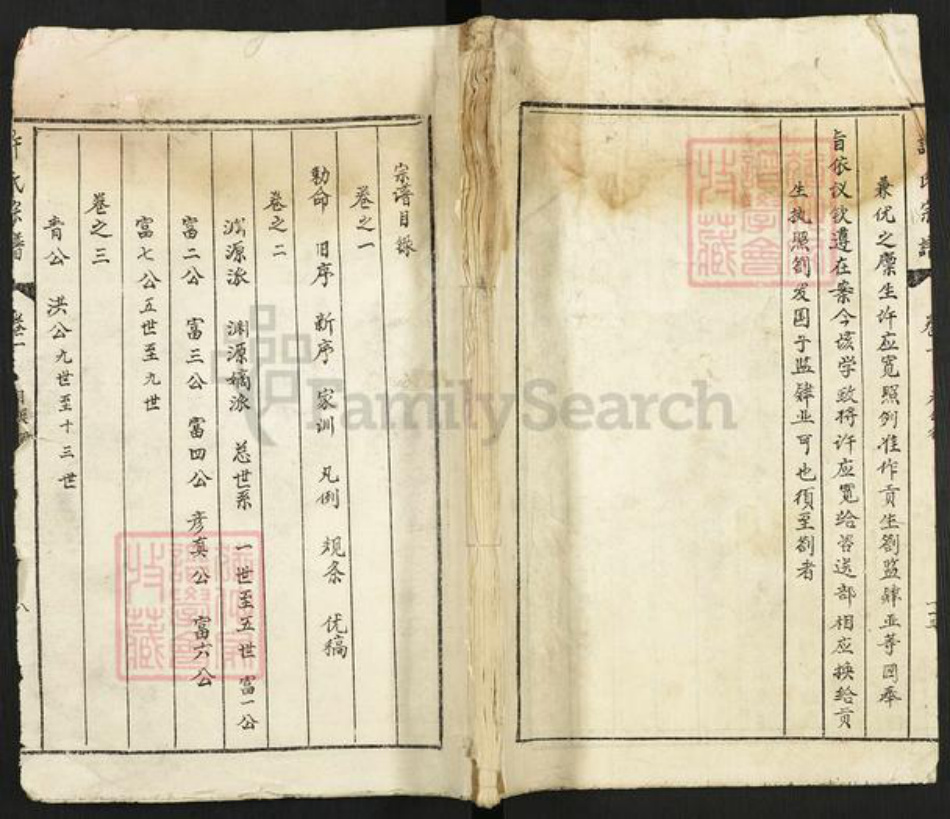 兼优之廪生许应宽照例准作贡生劄监肄业等因奉
旨依议钦遵在案今该学政将许应宽给咨送部相应换给贡
生执照劄发国子监肄业可也须至劄者
宗谱目录
卷之一
勅命 旧序 新序 家训 凡例 规条 优稿
卷之二
渊源派 渊源嫡派 总世系 一世至五世 富一公
富二公 富三公 富四公 彦真公 富六公
富七公五世至九世
卷之三
青公 洪公九世至十三世
许氏宗谱 卷一
FamilySearch